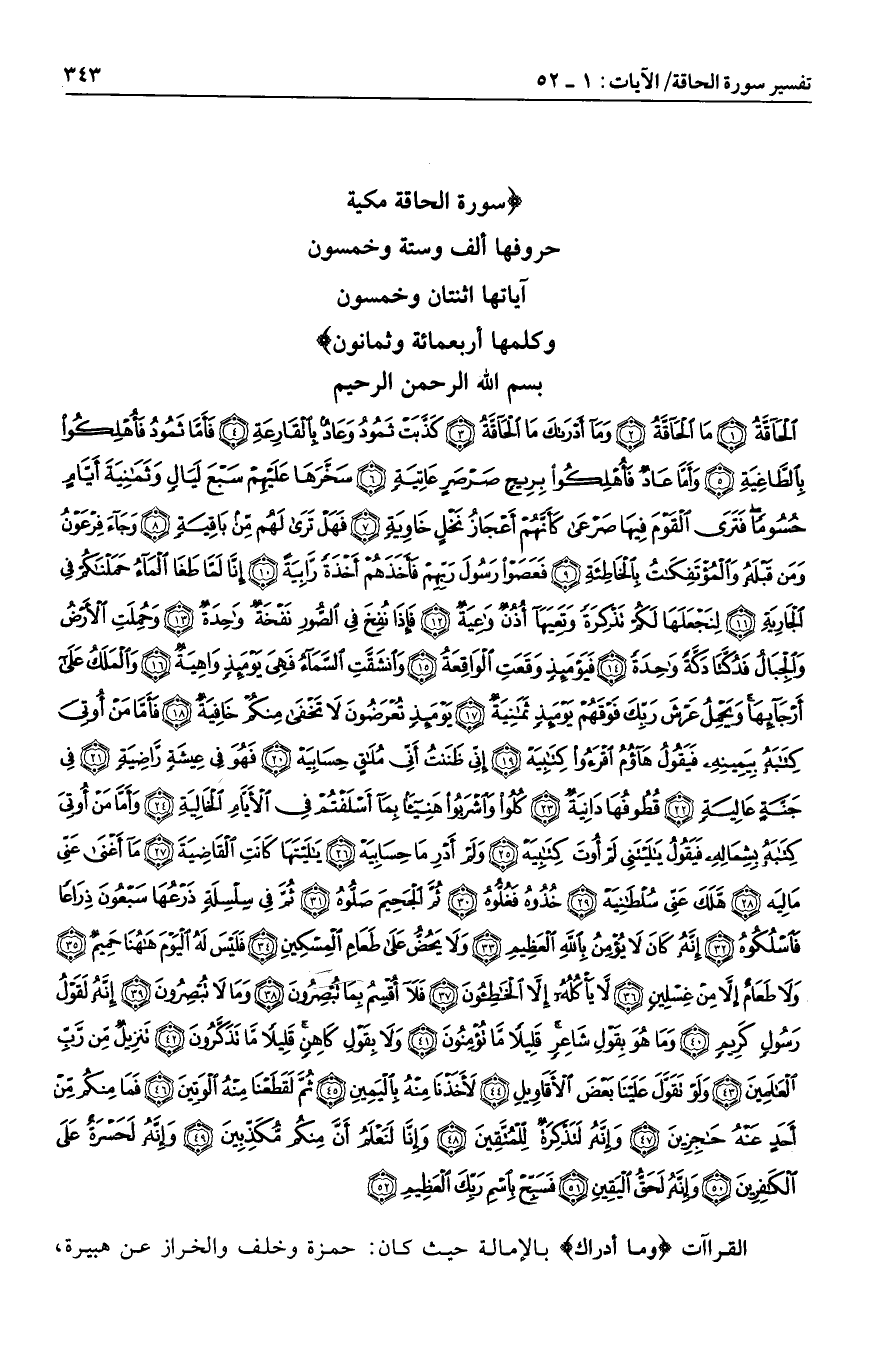 تفسير سورة الحاقة/ الآيات: ١ ـ ٥٢ ٣٤٣
﴿سورة الحاقة مكية
حروفها ألف وستة وخمسون
آياتها اثنتان وخمسون
وكلمها أربعمائة وثمانون﴾
بسم الله الرحمن الرحيم
ٱلْحَآقَّةُ ﴿١﴾ مَا ٱلْحَآقَّةُ ﴿٢﴾ وَمَآ أَدْرَىٰكَ مَا ٱلْحَآقَّةُ ﴿٣﴾ كَذَّبَتْ ثَمُودُ وَعَادٌۢ بِٱلْقَارِعَةِ ﴿٤﴾ فَأَمَّا ثَمُودُ فَأُهْلِكُوا۟
بِٱلطَّاغِيَةِ ﴿٥﴾ وَأَمَّا عَادٌ فَأُهْلِكُوا۟ بِرِيحٍ صَرْصَرٍ عَاتِيَةٍ ﴿٦﴾ سَخَّرَهَا عَلَيْهِمْ سَبْعَ لَيَالٍ وَثَمَٰنِيَةَ أَيَّامٍ
حُسُومًا فَتَرَى ٱلْقَوْمَ فِيهَا صَرْعَىٰ كَأَنَّهُمْ أَعْجَازُ نَخْلٍ خَاوِيَةٍ ﴿٧﴾ فَهَلْ تَرَىٰ لَهُم مِّنۢ بَاقِيَةٍ ﴿٨﴾ وَجَآءَ فِرْعَوْنُ
وَمَن قَبْلَهُۥ وَٱلْمُؤْتَفِكَٰتُ بِٱلْخَاطِئَةِ ﴿٩﴾ فَعَصَوْا۟ رَسُولَ رَبِّهِمْ فَأَخَذَهُمْ أَخْذَةً رَّابِيَةً ﴿١٠﴾ إِنَّا لَمَّا طَغَا ٱلْمَآءُ حَمَلْنَٰكُمْ فِى
ٱلْجَارِيَةِ ﴿١١﴾ لِنَجْعَلَهَا لَكُمْ تَذْكِرَةً وَتَعِيَهَآ أُذُنٌ وَٰعِيَةٌ ﴿١٢﴾ فَإِذَا نُفِخَ فِى ٱلصُّورِ نَفْخَةٌ وَٰحِدَةٌ ﴿١٣﴾ وَحُمِلَتِ ٱلْأَرْضُ
وَٱلْجِبَالُ فَدُكَّتَا دَكَّةً وَٰحِدَةً ﴿١٤﴾ فَيَوْمَئِذٍ وَقَعَتِ ٱلْوَاقِعَةُ ﴿١٥﴾ وَٱنشَقَّتِ ٱلسَّمَآءُ فَهِىَ يَوْمَئِذٍ وَاهِيَةٌ ﴿١٦﴾ وَٱلْمَلَكُ عَلَىٰٓ
أَرْجَآئِهَا وَيَحْمِلُ عَرْشَ رَبِّكَ فَوْقَهُمْ يَوْمَئِذٍ ثَمَٰنِيَةٌ ﴿١٧﴾ يَوْمَئِذٍ تُعْرَضُونَ لَا تَخْفَىٰ مِنكُمْ خَافِيَةٌ ﴿١٨﴾ فَأَمَّا مَنْ أُوتِىَ
كِتَٰبَهُۥ بِيَمِينِهِۦ فَيَقُولُ هَآؤُمُ ٱقْرَءُوا۟ كِتَٰبِيَهْ ﴿١٩﴾ إِنِّى ظَنَنتُ أَنِّى مُلَٰقٍ حِسَابِيَهْ ﴿٢٠﴾ فَهُوَ فِى عِيشَةٍ رَّاضِيَةٍ ﴿٢١﴾ فِى
جَنَّةٍ عَالِيَةٍ ﴿٢٢﴾ قُطُوفُهَا دَانِيَةٌ ﴿٢٣﴾ كُلُوا۟ وَٱشْرَبُوا۟ هَنِيٓـًٔۢا بِمَآ أَسْلَفْتُمْ فِى ٱلْأَيَّامِ ٱلْخَالِيَةِ ﴿٢٤﴾ وَأَمَّا مَنْ أُوتِىَ
كِتَٰبَهُۥ بِشِمَالِهِۦ فَيَقُولُ يَٰلَيْتَنِى لَمْ أُوتَ كِتَٰبِيَهْ ﴿٢٥﴾ وَلَمْ أَدْرِ مَا حِسَابِيَهْ ﴿٢٦﴾ يَٰلَيْتَهَا كَانَتِ ٱلْقَاضِيَةَ ﴿٢٧﴾ مَآ أَغْنَىٰ عَنِّى
مَالِيَهْ ﴿٢٨﴾ هَلَكَ عَنِّى سُلْطَٰنِيَهْ ﴿٢٩﴾ خُذُوهُ فَغُلُّوهُ ﴿٣٠﴾ ثُمَّ ٱلْجَحِيمَ صَلُّوهُ ﴿٣١﴾ ثُمَّ فِى سِلْسِلَةٍ ذَرْعُهَا سَبْعُونَ ذِرَاعًا
فَٱسْلُكُوهُ ﴿٣٢﴾ إِنَّهُۥ كَانَ لَا يُؤْمِنُ بِٱللَّهِ ٱلْعَظِيمِ ﴿٣٣﴾ وَلَا يَحُضُّ عَلَىٰ طَعَامِ ٱلْمِسْكِينِ ﴿٣٤﴾ فَلَيْسَ لَهُ ٱلْيَوْمَ هَٰهُنَا حَمِيمٌ ﴿٣٥﴾
وَلَا طَعَامٌ إِلَّا مِنْ غِسْلِينٍ ﴿٣٦﴾ لَّا يَأْكُلُهُۥٓ إِلَّا ٱلْخَٰطِـُٔونَ ﴿٣٧﴾ فَلَآ أُقْسِمُ بِمَا تُبْصِرُونَ ﴿٣٨﴾ وَمَا لَا تُبْصِرُونَ ﴿٣٩﴾ إِنَّهُۥ لَقَوْلُ
رَسُولٍ كَرِيمٍ ﴿٤٠﴾ وَمَا هُوَ بِقَوْلِ شَاعِرٍ قَلِيلًا مَّا تُؤْمِنُونَ ﴿٤١﴾ وَلَا بِقَوْلِ كَاهِنٍ قَلِيلًا مَّا تَذَكَّرُونَ ﴿٤٢﴾ تَنزِيلٌ مِّن رَّبِّ
ٱلْعَٰلَمِينَ ﴿٤٣﴾ وَلَوْ تَقَوَّلَ عَلَيْنَا بَعْضَ ٱلْأَقَاوِيلِ ﴿٤٤﴾ لَأَخَذْنَا مِنْهُ بِٱلْيَمِينِ ﴿٤٥﴾ ثُمَّ لَقَطَعْنَا مِنْهُ ٱلْوَتِينَ ﴿٤٦﴾ فَمَا مِنكُم مِّنْ
أَحَدٍ عَنْهُ حَٰجِزِينَ ﴿٤٧﴾ وَإِنَّهُۥ لَتَذْكِرَةٌ لِّلْمُتَّقِينَ ﴿٤٨﴾ وَإِنَّا لَنَعْلَمُ أَنَّ مِنكُم مُّكَذِّبِينَ ﴿٤٩﴾ وَإِنَّهُۥ لَحَسْرَةٌ عَلَى
ٱلْكَٰفِرِينَ ﴿٥٠﴾ وَإِنَّهُۥ لَحَقُّ ٱلْيَقِينِ ﴿٥١﴾ فَسَبِّحْ بِٱسْمِ رَبِّكَ ٱلْعَظِيمِ ﴿٥٢﴾
القراآت ﴿وما أدراك﴾ بالإمالة حيث كان: حمزة وخلف والخراز عن هبيرة،